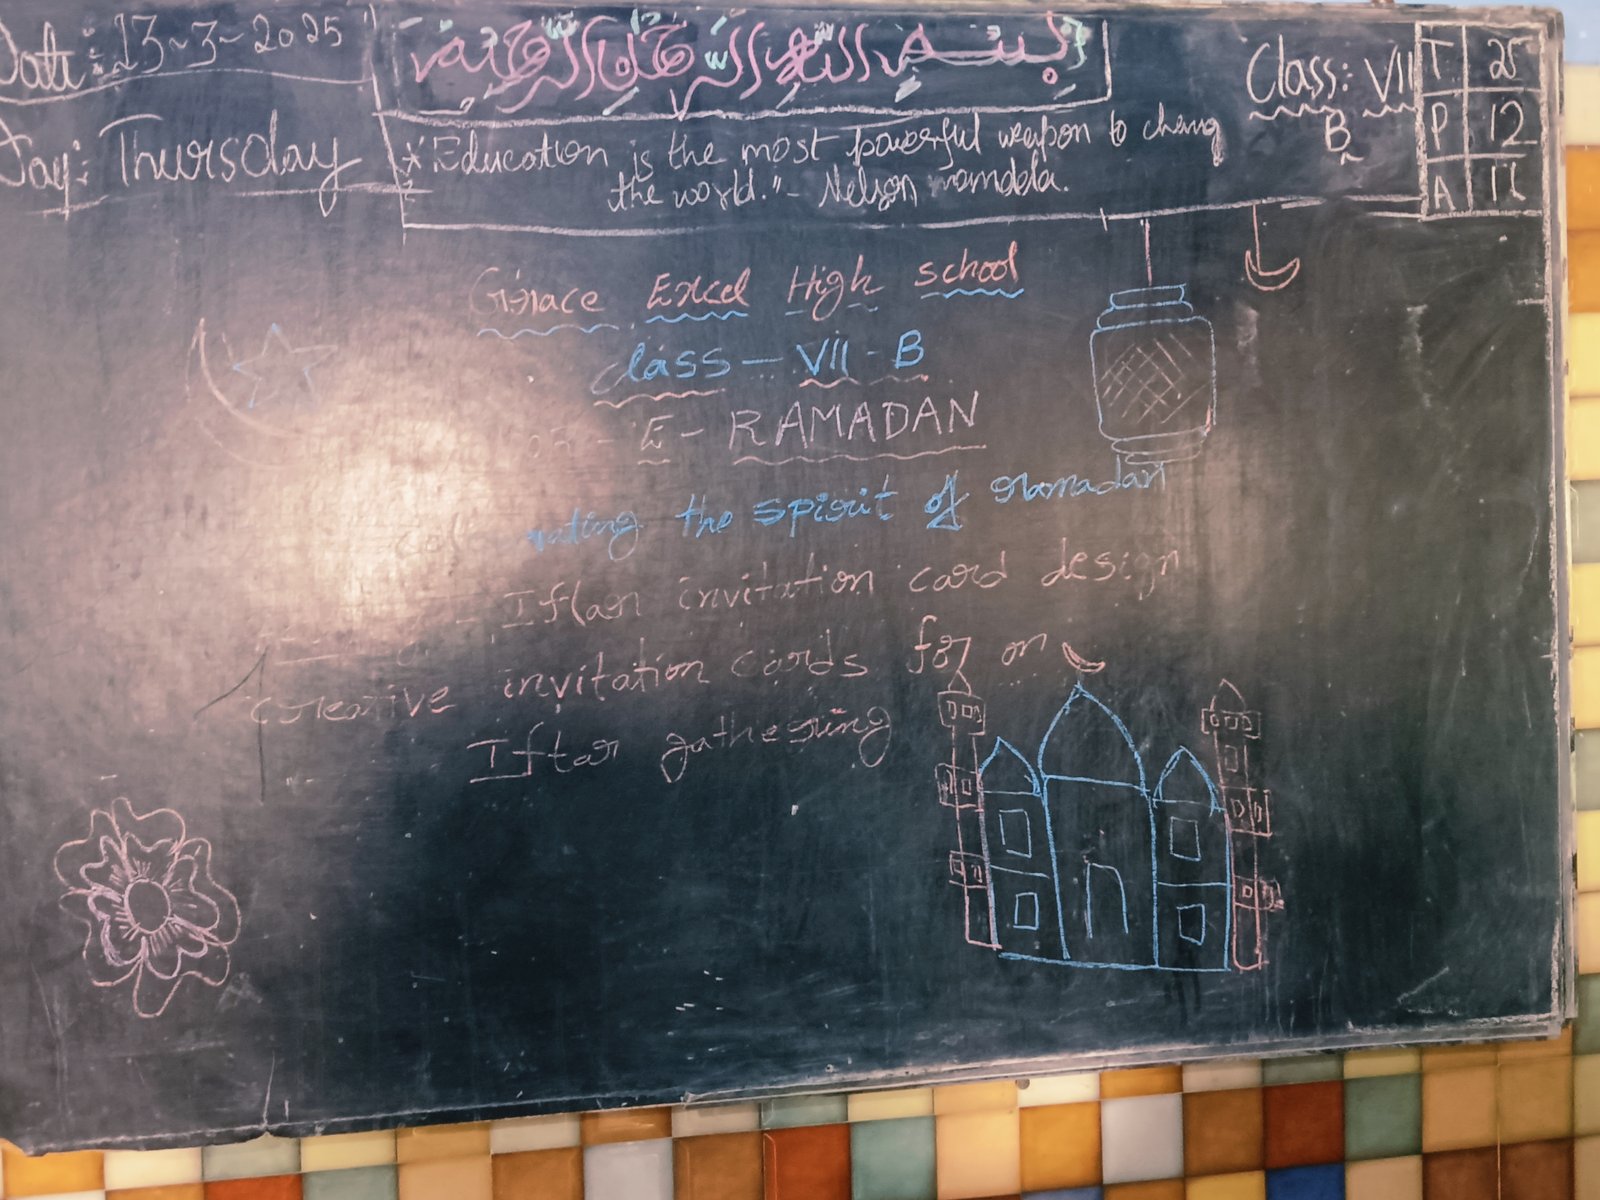 Date: 13-3-2025
Day: Thursday
بِسْمِ اللهِ الرَّحْمٰنِ الرَّحِيْمِ
"Education is the most powerful weapon to chang
the world." - Nelson mamdela.
Class: VII
B
T 25
P 12
A
Grace Excel High school
Class - VII - B
- E - RAMADAN
the spirit of ramadan
Iftar invitation card design
creative invitation cards for an
Iftar gathering